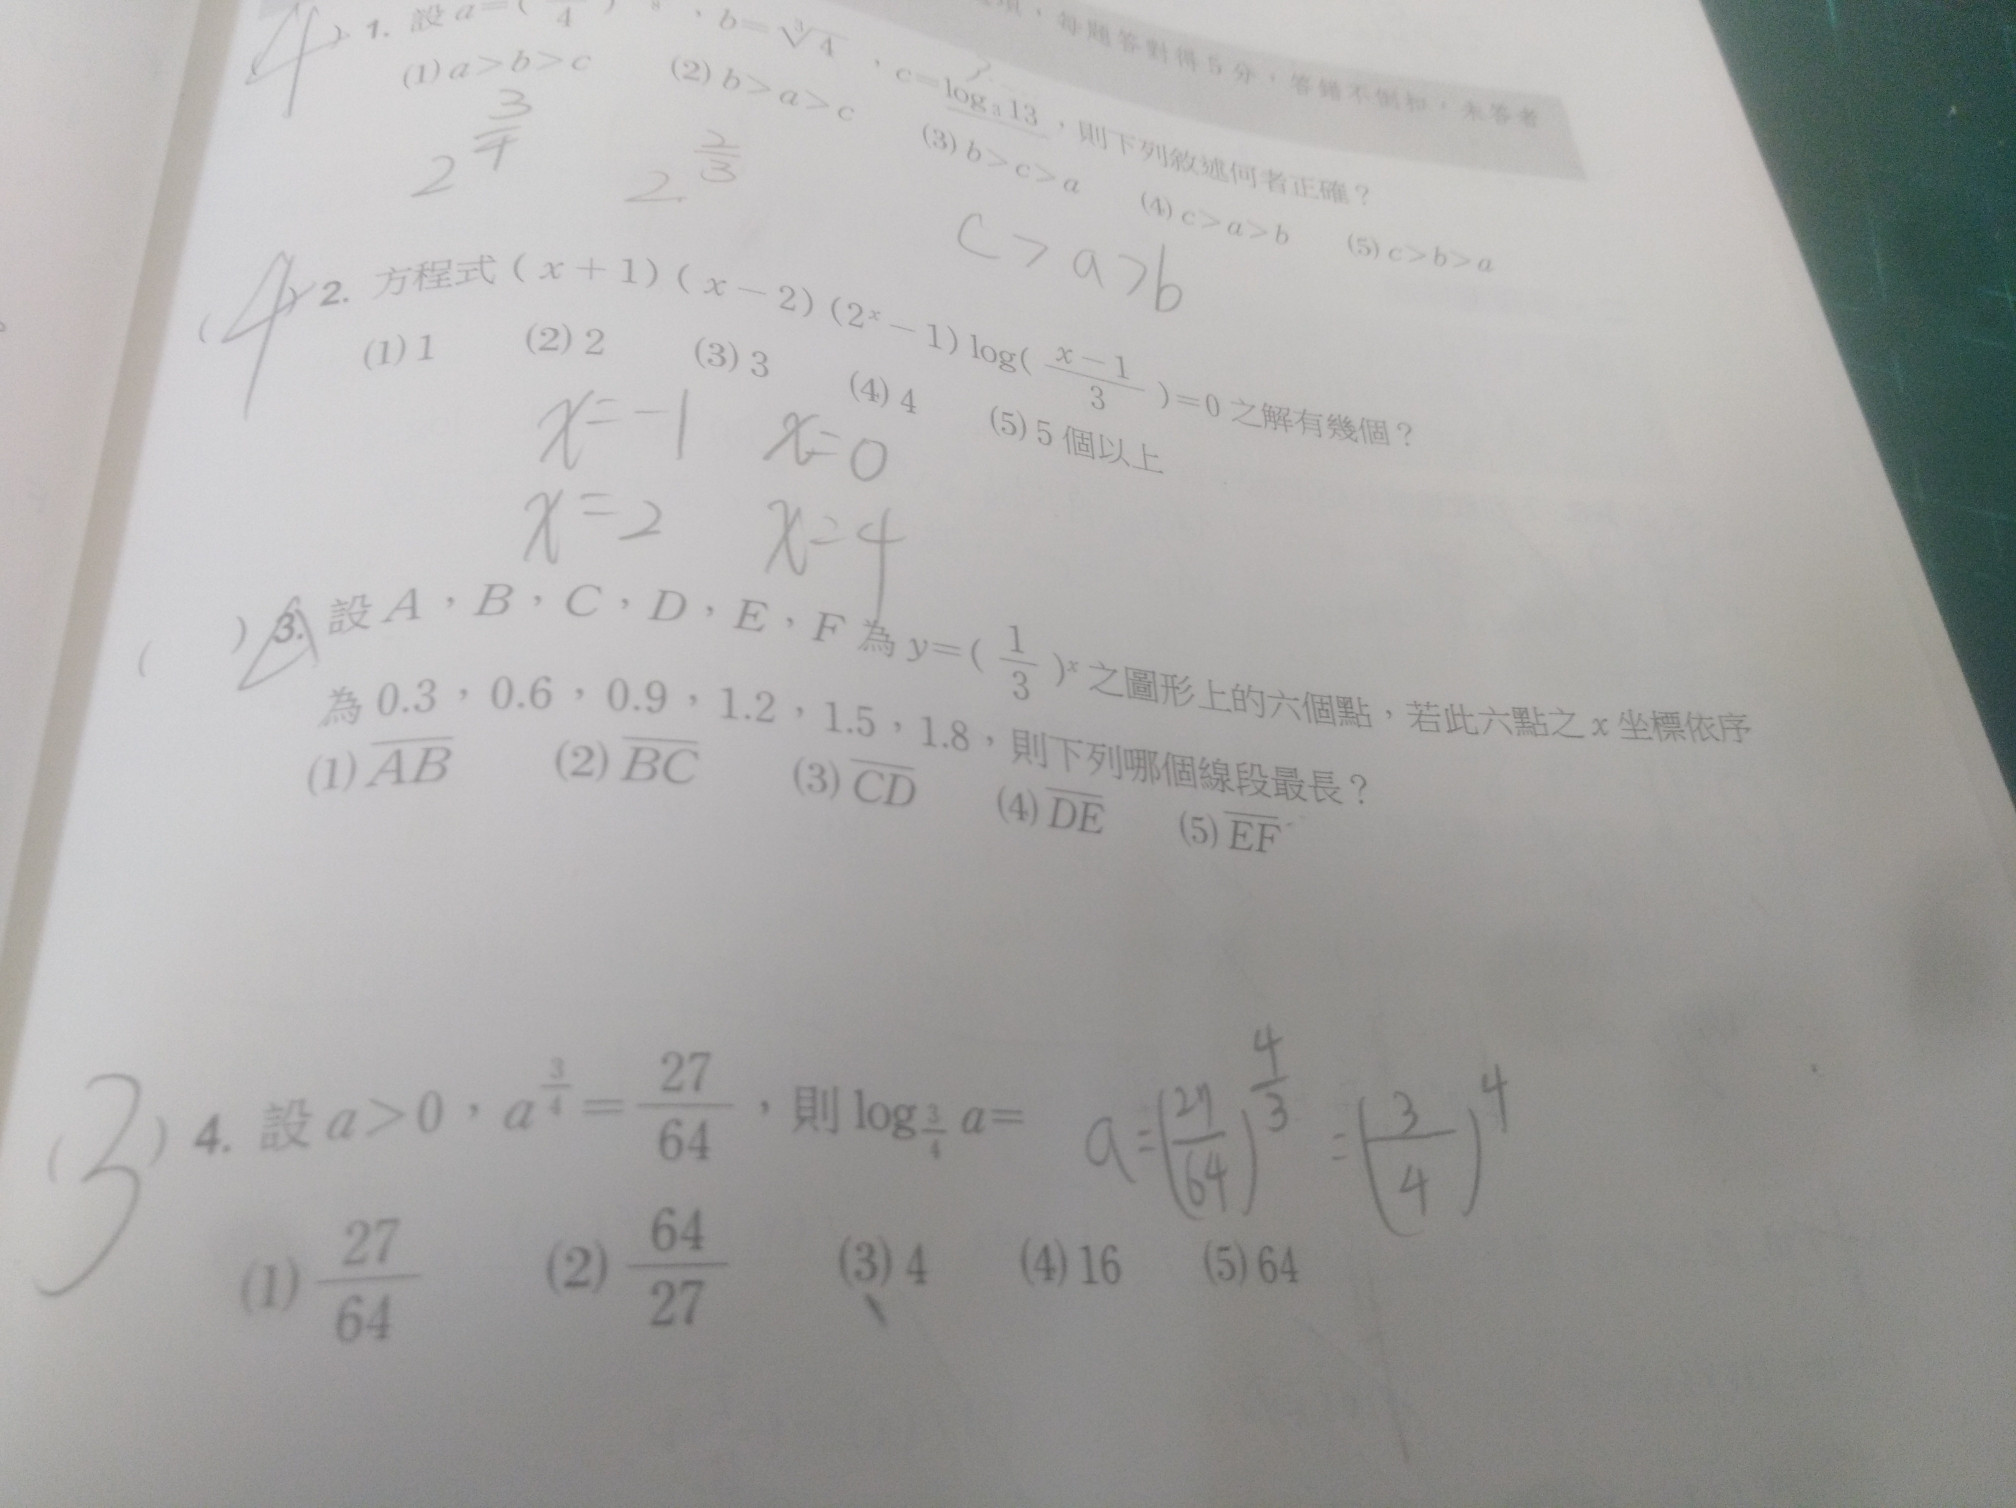 每題答對得5分，答錯不倒扣，未答者
4 ) 1. 設 a=( 4 ) 8 ，b=∛4，c=log₃13，則下列敘述何者正確？
(1) a>b>c (2) b>a>c (3) b>c>a (4) c>a>b (5) c>b>a
2^(3/4) 2^(2/3) c>a>b
( 4 ) 2. 方程式(x+1)(x-2)(2ˣ-1)log((x-1)/3)=0之解有幾個？
(1) 1 (2) 2 (3) 3 (4) 4 (5) 5個以上
x=-1 x=0
x=2 x=4
( ) 3. 設A，B，C，D，E，F為y=(1/3)ˣ之圖形上的六個點，若此六點之x坐標依序
為0.3，0.6，0.9，1.2，1.5，1.8，則下列哪個線段最長？
(1) A̅B̅ (2) B̅C̅ (3) C̅D̅ (4) D̅E̅ (5) E̅F̅
( 3 ) 4. 設a>0，a^(3/4)=27/64，則log_(3/4) a= a=(27/64)^(4/3)=(3/4)^4
(1) 27/64 (2) 64/27 (3) 4 (4) 16 (5) 64